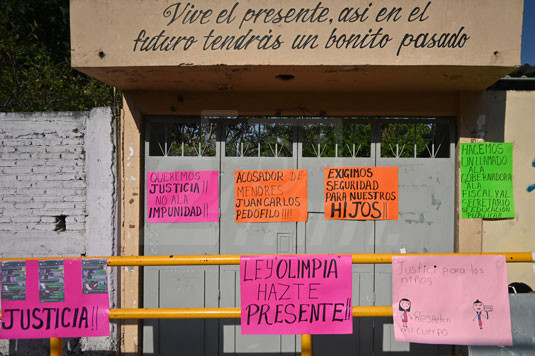 Vive el presente, asi en el
futuro tendrás un bonito pasado
QUEREMOS
JUSTICIA!!
NO ALA
IMPUNIDAD!!
ACOSADOR DE
MENORES
JUAN CARLOS
PEDOFILO!!!!
EXIGIMOS
SEGURIDAD
PARA NUESTROS
HIJOS!!
HACEMOS
UN LLAMADO
ALA
GOBERNADORA
ALA
FISCAL Y EL
SECRETARIO
DE EDUCACION
PUBLICA!!
JUSTICIA!!
LEY OLIMPIA
HAZTE
PRESENTE!!
Justicia para los
niños
Respeten
mi cuerpo